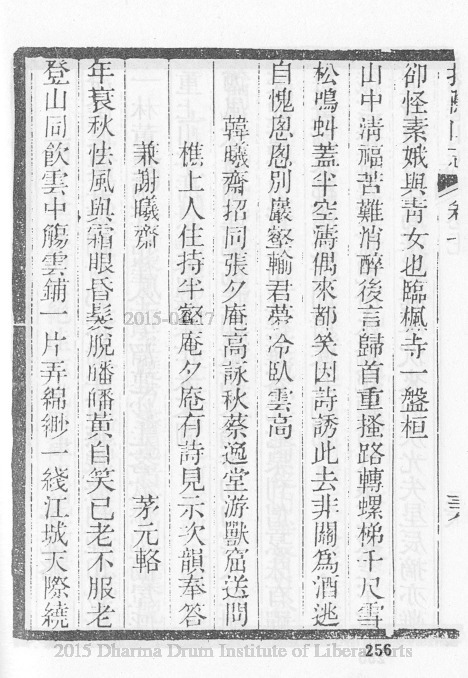 卻怪素娥與青女也臨楓寺一盤桓
山中清福苦難消醉後言歸首重搔路轉螺梯千尺雪
松鳴蚪蓋半空濤偶來都笑因詩誘此去非關為酒逃
自愧恩恩別巖壑輸君夢冷臥雲高
韓曦齋招同張夕庵高詠秋蔡逸堂游獸窟送問
樵上人住持半壑庵夕庵有詩見示次韻奉答
兼謝曦齋
茅元輅
年衰秋怯風與霜眼昏髮脫皤皤黃自笑已老不服老
登山同飲雲中觴雲鋪一片弄綿緲一綫江城天際繞
2015-0
256
2015 Dharma Drum Institute of Liberal Arts